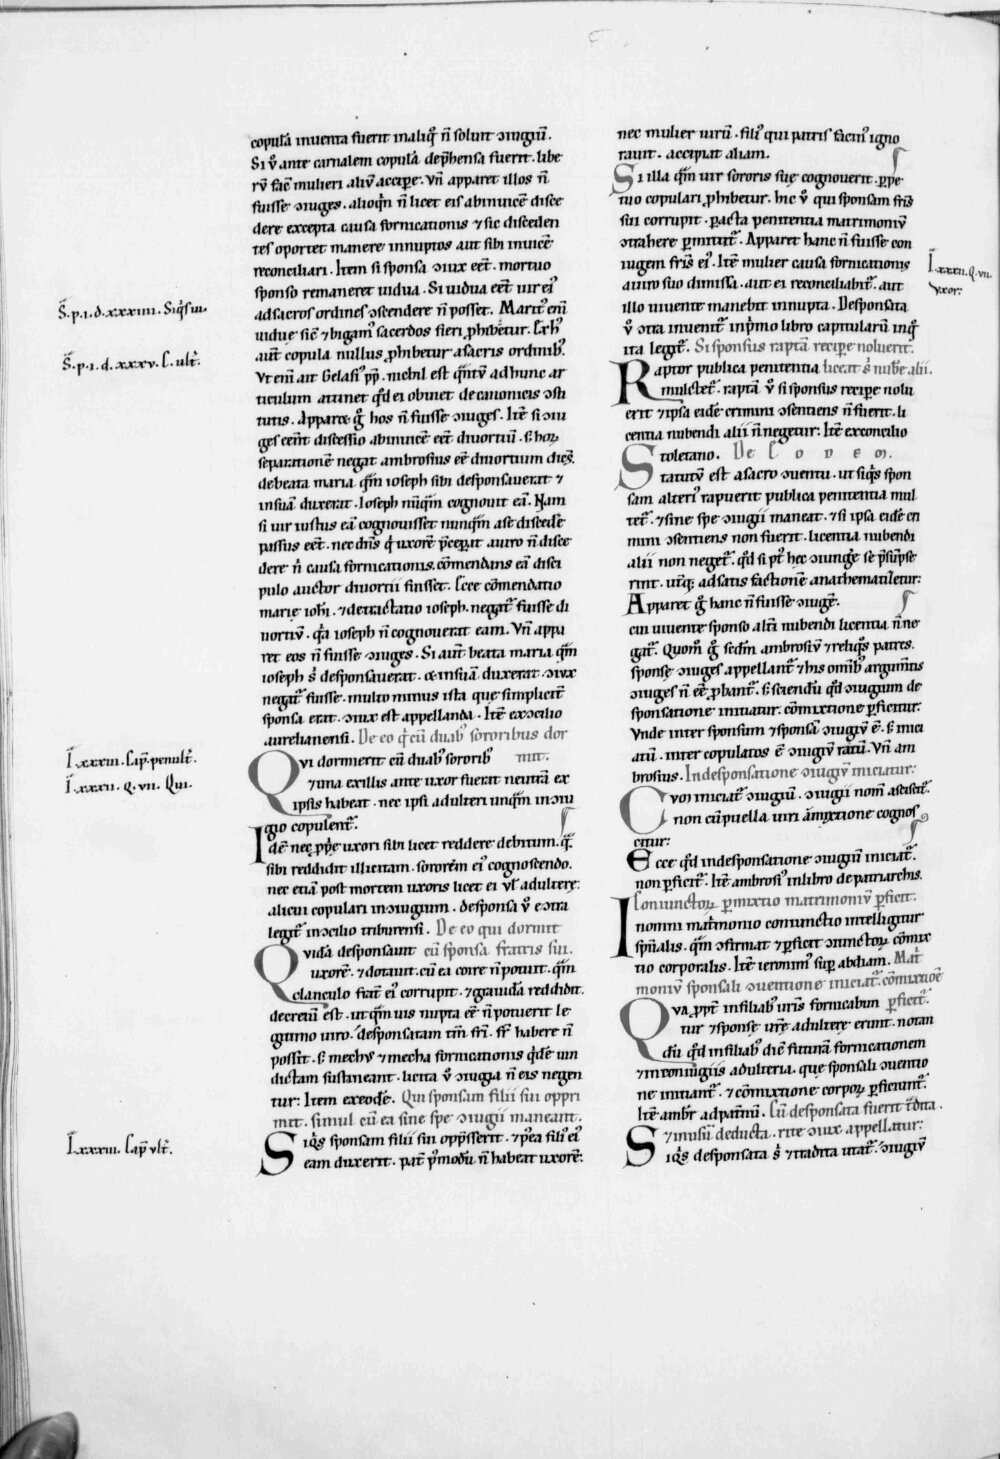 copulā inventa fuerit in aliq᷒ n̄ solvit ɔiugiū.
Si v̊ ante carnalem copulā dep̄hensa fuerit. libe
rū facē mulieri aliū accip̱e. Vn̄ apparet illos n̄
fuisse ɔiuges. alioqn̄ n̄ licet eis abinvicē disce
dere excepta causa fornicationis ⁊ sic disceden
tes oportet manere innuptos aut sibi invicē
reconciliari. Item si sponsa ɔiux eēt. mortuo
sponso remaneret vidua. Si vidua eēt vir ei᷒
ad sacros ordines ascendere n̄ posset. Marit᷒ eni᷒
vidue sic̄ ⁊ bigam᷒ sacerdos fieri ꝓhibetur. Ex h᷒
aūt copula nullus ꝓhibetur a sacris ordinib᷒.
Vt eni᷒ ait Gelasi᷒ pp̄. nichil est q̄ntū ad hunc ar
ticulum attinet qd̄ ei obviet de canonicis ɔsti
tutis. Apparet g̊ hos n̄ fuisse ɔiuges. Itē si ɔiu
ges eēnt discessio abinvicē eēt divortiū. s; hoꝝ
separationē negat ambrosius eē divortium dicēs.
de beata maria q̄m ioseph sibi desponsaverat ⁊
in suā duxerat. Ioseph nūq̄m cognovit eā. Nam
si vir iustus eā cognovisset nunq̄m a se discedē
passus eēt. nec dn̄s q̇ uxorē p̄cep̄at a viro n̄ disce
dere n̄ causa fornicationis. cōmendans eā disci
pulo auctor divortii fuisset. Ecce cōmendatio
marie ioh̄i. ⁊ detractatio ioseph. negat᷑ fuisse di
vortiū. q̇a ioseph n̄ cognoverat eam. Vn̄ appa
ret eos n̄ fuisse ɔiuges. Si aūt beata maria q̄m
ioseph s; desponsaverat. ⁊ in suā duxerat. ɔiux
negat᷑ fuisse. multo minus ista que simplicit᷑
sponsa erat. ɔiux est appellanda. Itē ex ɔcilio
aurelianensi. De eo q̇ cū duab᷒ sororibus dor
Qvi dormierit cū duab᷒ sororib᷒ mit.
⁊ una ex illis ante uxor fuerit neutrā ex
ipsis habeat. nec ipsi adulteri unq̄m in ɔiu
gio copulent᷑.
Idē nec ꝓp̱e uxori sibi licet reddere debitum. q̄
sibi reddidit illicitam. sororem ei᷒ cognoscendo.
nec etiā post mortem uxoris licet ei vł adultere
alicui copulari in ɔiugium. desponsa v̊ ecōtra
legit᷑ in ɔcilio triburensi. De eo qui dormit
Qvidā desponsavit cū sponsa fratris sui.
uxorē. ⁊ dotavit. cū ea coire n̄ potuit. q̄m
clanculo frat᷑ ei᷒ corrupit. ⁊ gravidā reddidit.
decretū est. ut q̄m vis nupta eē n̄ potuerit le
gitimo viro. desponsatam tm̄ fr̄i. fr̄ habere n̄
possit. s; mech᷒ ⁊ mecha fornicationis q̇dē vin
dictam sustineant. licita v̊ ɔiugia n̄ eis negen
tur. Item ex eodē. Qui sponsam filii sui oppri
mit. simul cū ea sine spe ɔiugii maneant.
Siq̇s sponsam filii sui opp̄sserit. ⁊ p᷒ea fili᷒ ei᷒
eam duxerit. pat᷑ p᷒modū n̄ habeat uxorē.
nec mulier virū. fili᷒ qui patris facin᷒ igno
ravit. accipiat aliam.
Si illa q̄m vir sororis suę cognoverit. p̱pe
tuo copulari ꝓhibetur. hic v̊ qui sponsam fr̄is
sui corrupit. p̱acta penitentia matrimoniū
ɔtrahere p̱mittit᷑. Apparet hanc n̄ fuisse con
iugem fr̄is ei᷒. Itē mulier causa fornicationis
a viro suo dimissa. aut ei reconciliabit᷑. aut
illo vivente manebit innupta. Desponsata
v̊ ɔtra invenit᷑ in p᷒mo libro capitularū inq̇
ita legit᷑. Si sponsus raptā recip̱e noluerit.
Raptor publica penitentia liceat s; nuḇe alii.
mulctet᷑. raptā v̊ si sponsus recip̱e nolu
erit ⁊ ipsa eidē crimini ɔsentiens n̄ fuerit. li
centia nubendi alii n̄ negetur. Itē ex concilio
toletano. De eodem.
Statutū est a sacro ɔventu. ut siq̇s spon
sam alteri᷒ rapuerit publica penitentia mul
tet᷑. ⁊ sine spe ɔiugii maneat. ⁊ si ipsa eidē cri
mini ɔsentiens non fuerit. licentia nubendi
alii non neget᷑. qd̄ si p᷒t hec ɔiunge̱ se p̄sūpse
rint. utq; ad satisfactionē anathematizetur.
Apparet g̊ hanc n̄ fuisse ɔiugē.
cui vivente sponso alt᷑i nubendi licentia n̄ ne
gat᷑. Quom̊ g̊ scd̄m ambrosiū ⁊ reliq᷒s patres.
sponsę ɔiuges appellant᷑ ⁊ his omīb᷒ argumtis
ɔiuges n̄ eē ꝓbant᷑. s; sciendū qd̄ ɔiugium de
sponsatione initiatur. cōmixtione p̱ficitur.
Vnde inter sponsum ⁊ sponsā ɔiugiū ē. s; inici
atū. inter copulatos ē ɔiugiū ratū. Vn̄ am
brosius. In desponsatione ɔiugiū iniciatur.
Cvm iniciat᷑ ɔiugiū. ɔiugii nom̄ asciscit᷑.
non cū puella viri āmixtione cognos
citur.
Ecce qd̄ in desponsatione ɔiugiū iniciat᷑.
non p̱ficit᷑. Itē ambrosi᷒ in libro de patriarchis.
Coniunctoꝝ p̱mixtio matrimoniū p̱ficit.
In omni mat᷑monio coniunctio intelligitur
sp̄italis. q̄m ɔfirmat ⁊ p̱ficit ɔiunctoꝝ cōmix
tio corporalis. Itē ieronim᷒ sup̱ abdiam. Mat᷑
moniū sponsali ɔventione iniciat᷑. cōmixtiōe
Qva ꝓpt᷑ in filiab᷒ vr̄is fornicabun p̱ficit᷑.
tur ⁊ sponsę vr̄ę adulterę erunt. notan
dū qd̄ in filiab᷒ dic̄ futurā fornicationem
⁊ in coniugiis adulteria. que sponsali ɔventio
ne initiant᷑. ⁊ cōmixtione corpoꝝ p̱ficiunt᷑.
Itē ambr̄ ad pat᷑nū. Cū desponsata fuerit t᷑dita.
⁊ in usū deducta. rite ɔiux appellatur.
Siq̇s desponsata s; ⁊ tradita utat᷑. ɔiugiū
S̄.p.i.d.xxxiiii. Siq᷒s ui.
S̄.p.i.d.xxxv.C.ult.
I.xxxiii. Cap̄ penult.
I.xxxii.q.vii. Qui.
I.xxxiii. Cap̄ vlt.
I.xxxii.q.vii.
vxor.